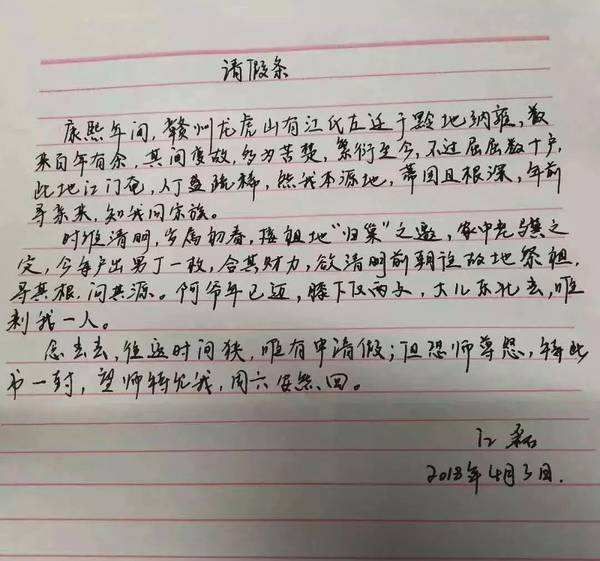 请假条
康熙年间，赣州龙虎山有江氏左迁于黔地纳雍，数
来百年有余，其间变故，多为苦楚，繁衍至今，不过屈屈数十户，
此地江门奄，人丁益疏稀，然我本源地，蒂固且根深，年前
寻亲来，知我同宗族。
时维清明，岁属初春，接祖地“归巢”之邀，家中老
定，今每户出男丁一枚，合其财力，欲清明前朝谊故地祭祖，
寻其根，问其源。何爷年已迈，膝下仅两子，大儿东北去，唯
剩我一人。
念去去，往返时间狭，唯有申请假；但恐师尊怒，特此
书一封，望师特允我，周六安然回。
江磊
2018年4月3日.